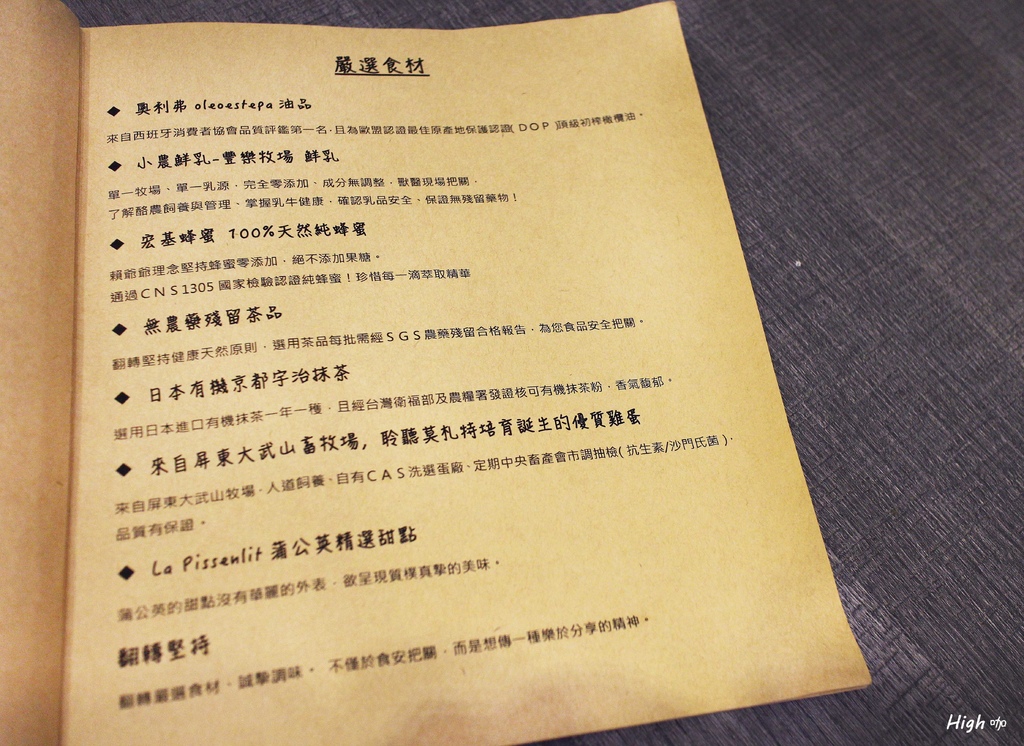 嚴選食材
◆ 奧利弗 oleoestepa 油品
來自西班牙消費者協會品質評鑑第一名，且為歐盟認證最佳原產地保護認證( DOP )頂級初榨橄欖油。
◆ 小農鮮乳-豐樂牧場 鮮乳
單一牧場、單一乳源，完全零添加、成分無調整，獸醫現場把關，
了解酪農飼養與管理、掌握乳牛健康，確認乳品安全、保證無殘留藥物！
◆ 宏基蜂蜜 100%天然純蜂蜜
賴爺爺理念堅持蜂蜜零添加，絕不添加果糖。
通過CNS1305 國家檢驗認證純蜂蜜！珍惜每一滴萃取精華
◆ 無農藥殘留茶品
翻轉堅持健康天然原則，選用茶品每批需經SGS農藥殘留合格報告，為您食品安全把關。
◆ 日本有機京都宇治抹茶
選用日本進口有機抹茶一年一種，且經台灣衛福部及農糧署發證核可有機抹茶粉，香氣馥郁。
◆ 來自屏東大武山畜牧場, 聆聽莫札特培育誕生的優質雞蛋
來自屏東大武山牧場，人道飼養、自有CAS洗選蛋廠、定期中央畜產會市調抽檢( 抗生素/沙門氏菌 )，
品質有保證。
◆ La Pissenlit 蒲公英精選甜點
蒲公英的甜點沒有華麗的外表，欲呈現質樸真摯的美味。
翻轉堅持
翻轉嚴選食材，誠摯調味。 不僅於食安把關，而是想傳一種樂於分享的精神。
High 咖